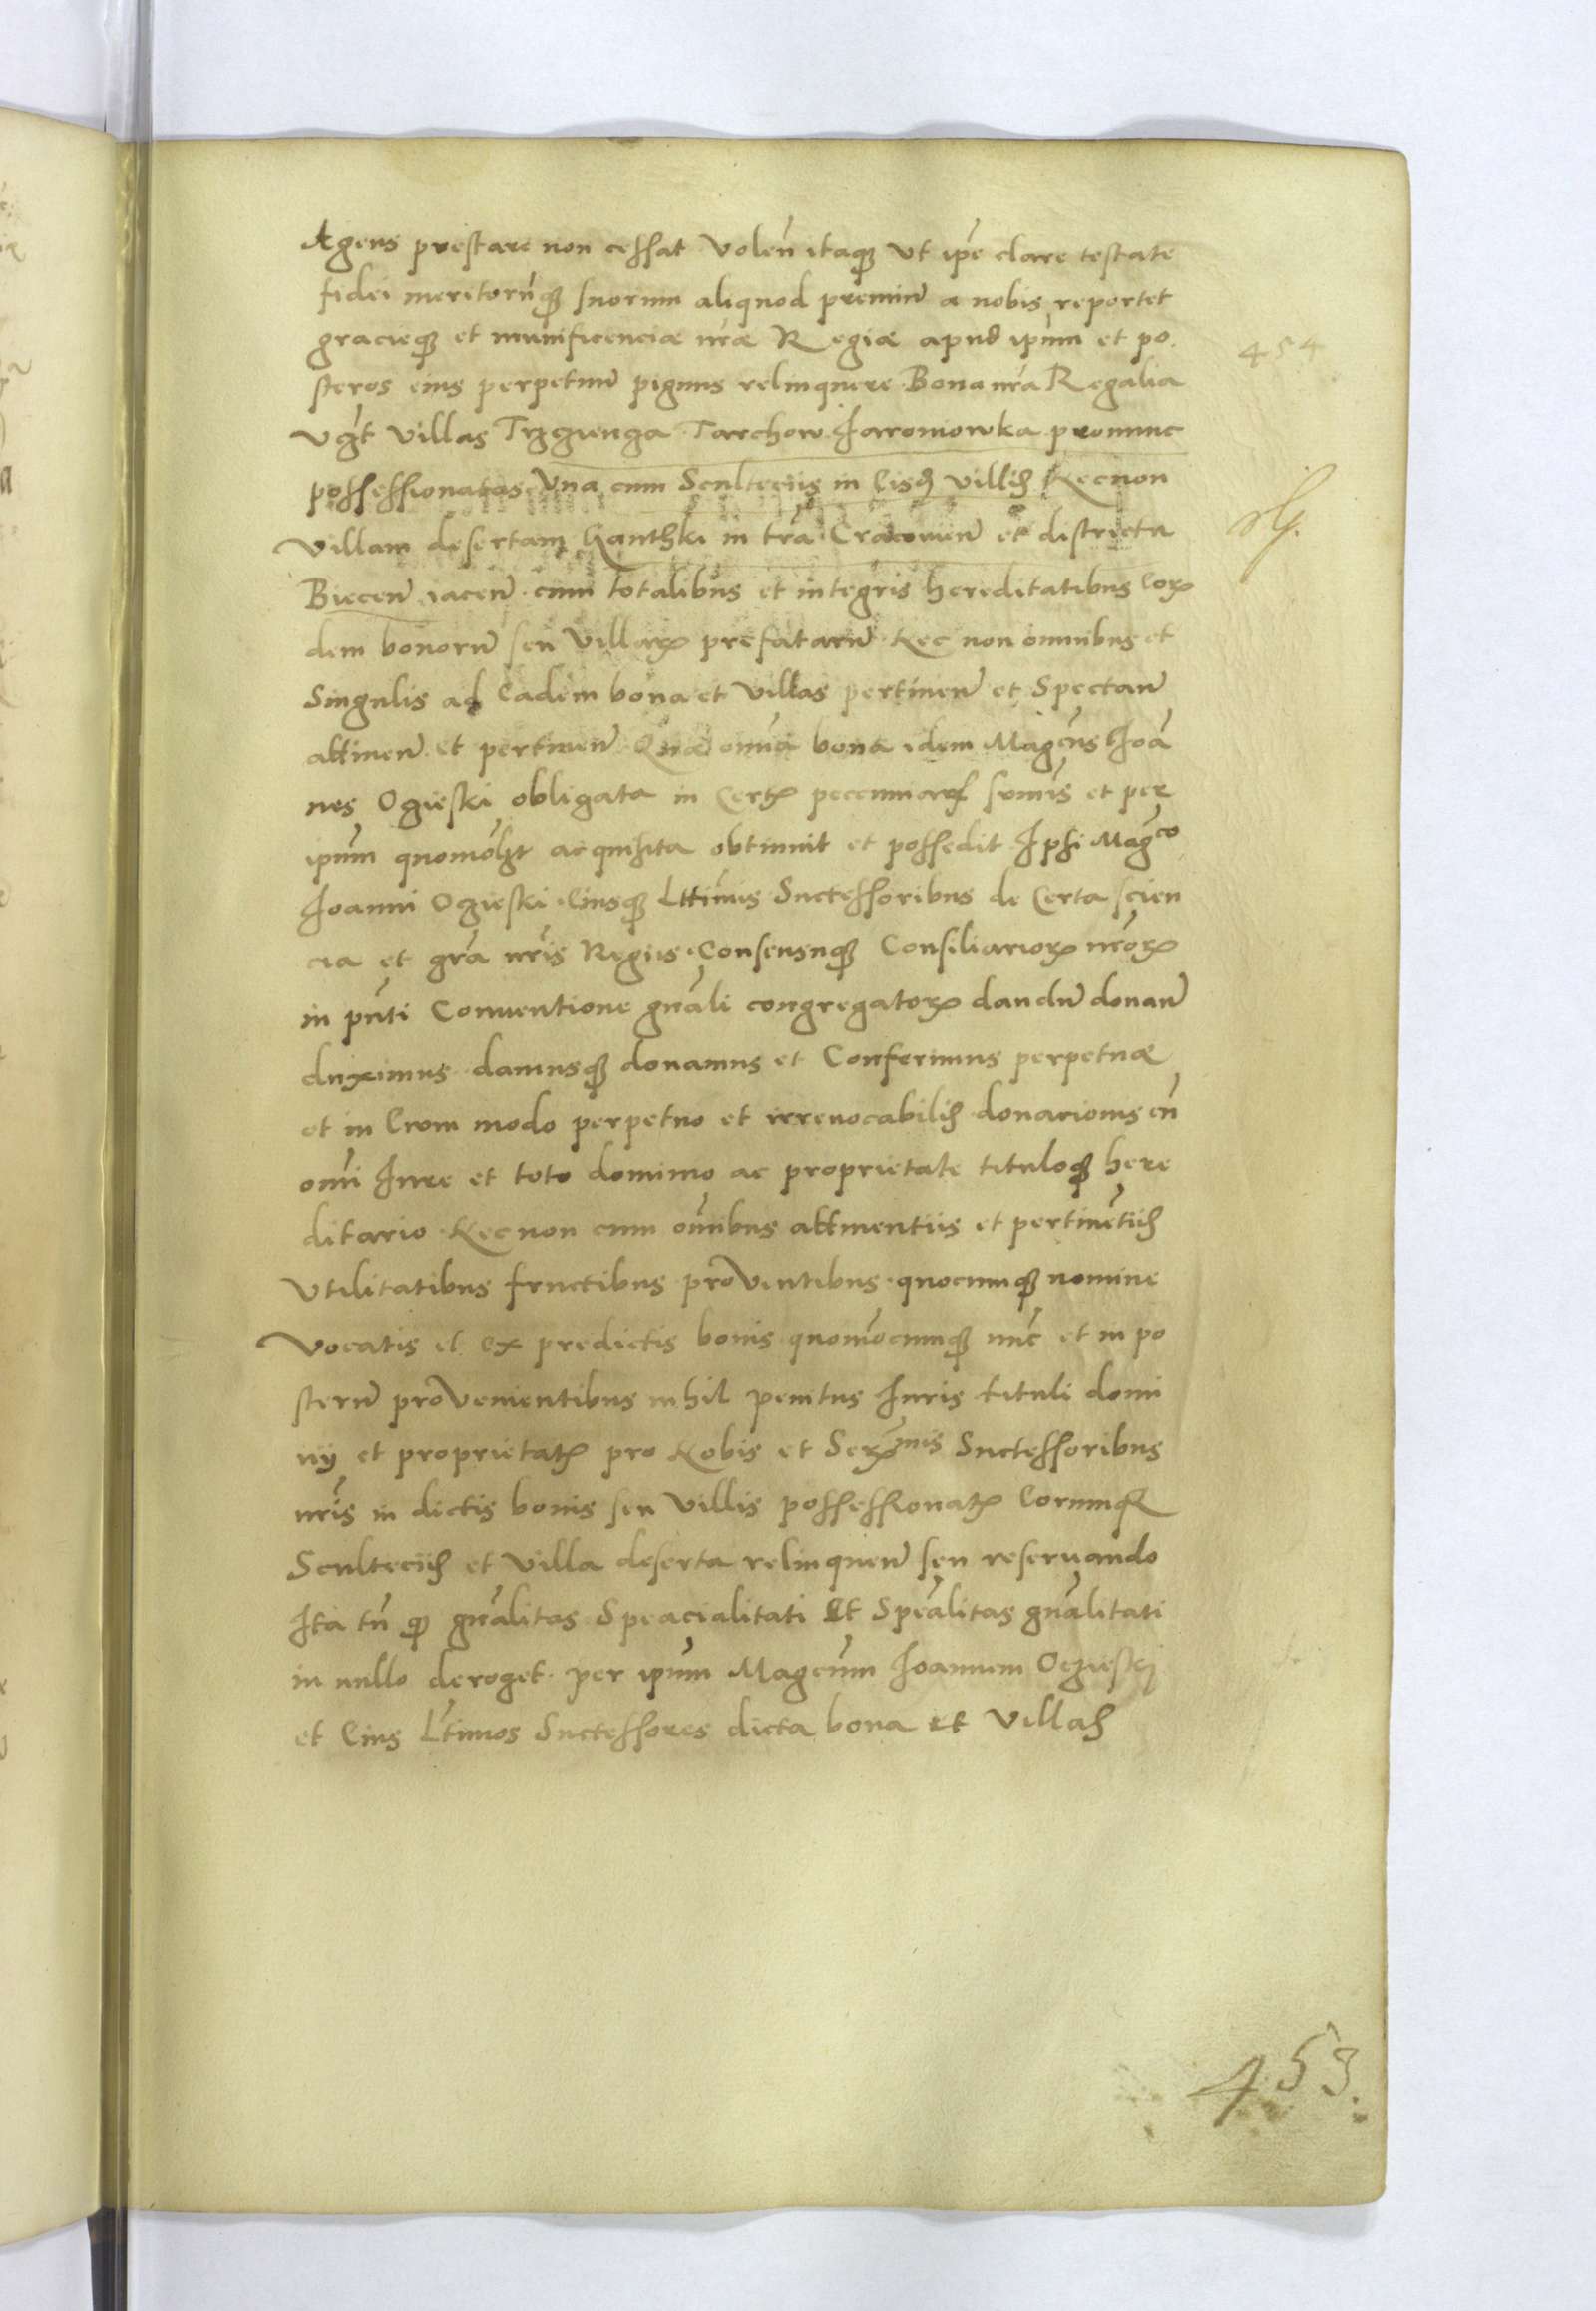 Agens prestare non cessat Voleñ itaq₃ Vt ip̃e clare testate
fidei meritorūq₃ suorum aliquod premiū a nobis reportet
gracieq₃ et munificenciæ nr̃æ Regiæ apud ip̃um et po.
steros eius perpetuū pignus relinquere Bona nr̃a Regalia
Vꝫt Villas Trzczienga Tarchow Jaromowka pronunc
possessionatas Vna cum Sculteciis in Eisd̄ villis Necnon
Villam desertam Kanthki in tr̃a Cracouieñ et districtu
Bieceñ iaceñ cum totalibus et integris hereditatibus Eoꝝ
dem bonorū seu Villaꝝ prefatarū Nec non omnibus et
Singulis ad Eadem bona et Villas pertineñ et Spectañ
attineñ et pertineñ Quæ om̃ia bona idem Mag̃cus Joã
nes Oczieski obligata in Certꝭ pecuniaꝝ sum̃is et per
ip̃um quomõlꝫt acquisita obtinuit et possedit Ipsi Mag̃co
Joanni Oczieski Eiusq₃ Lttĩmis Successoribus de Certa scien
cia et gr̃a nr̃is Regiis Consensuq₃ Consiliarioꝝ nr̃oꝝ
in pñti Conuentione gñali congregatoꝝ dandū donañ
duximus damusq₃ donamus et Conferimus perpetuæ
et in Er̃um modo perpetuo et irreuocabilis donacionis cũ
om̃i Jure et toto dominio ac proprietate tituloq₃ here
ditario Necnon cum om̃ibus attinentiis et pertinẽtiis
Vtilitatibus fructibus proVentibus quocumq₃ nomine
Vocatis et ex predictis bonis quomõcumq₃ nũc et in po
sterū proVenientibus nihil penitus Juris tituli domi
nij et proprietatꝭ pro Nobis et Ser̃mis Successoribus
nr̃is in dictis bonis seu Villis possessionatꝭ Eorumq₃
Sculteciis et Villa deserta relinqueñ seu reseruando
Ita tñ ꝙ gñalitas Speacialitati Et Spẽalitas gñalitati
in nullo deroget per ip̃um Magcũm Joannem Oczieski
et Eius L̃timos Successores dicta bona et Villas
454
453.